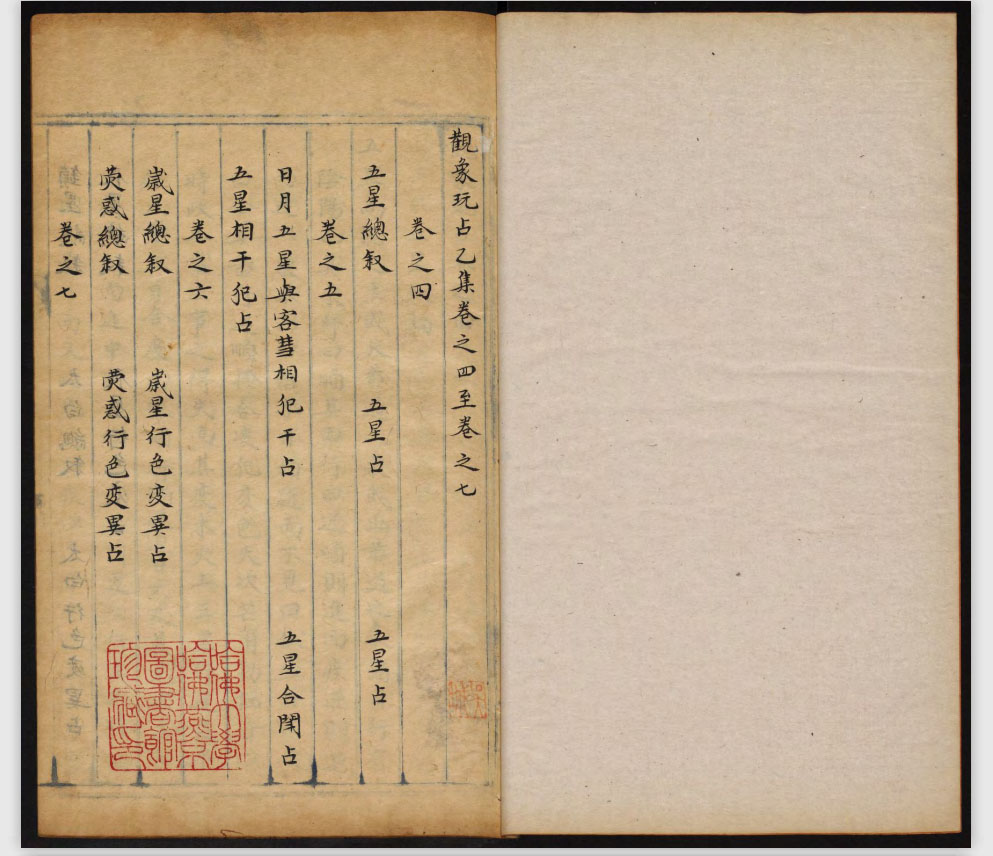 觀象玩占乙集卷之四至卷之七
卷之四
五星總叙 五星占 五星占
卷之五
日月五星與客彗相犯干占 五星合鬥占
五星相干犯占
卷之六
歲星總叙 歲星行色变異占
熒惑總叙 熒惑行色变異占
卷之七
哈佛大學
哈佛燕京
圖書館
珍藏印